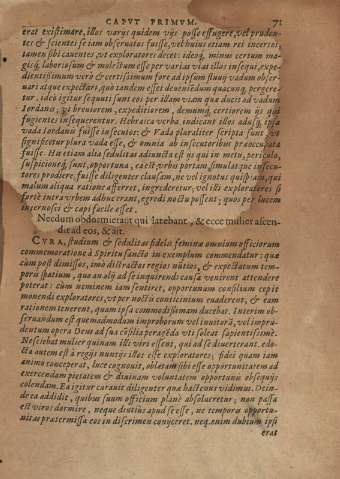 CAPVT PRIMVM. 71
erat existimare, illos varijs quidem vijs posse effugere, vel pruden-
tes & scientes se iam obseruatos fuisse, vel huius etiam rei incertos,
tamen sibi cauentes, vt exploratores decet: ideoq́, minus certum ma-
gisq́, laboriosum & molestum esse per varias vias illos insequi, expe-
ditissimum verò & certissimum fore ad ipsum fluuij vadum obser-
uari atque expectari, quò tandem esset deueniēdum quacunq́, pergere-
tur. ideò igitur sequuti sunt eos per illam viam quæ ducit ad vadum
Iordanis, vt breuiorem, expeditiorem, demumq́, certiorem ijs qui
fugientes insequerentur. Hebraica verba indicant illos adusq́, ipsa
vada Iordanis fuisse insecutos: & Vada pluraliter scripta sunt, vt
significetur plura vada esse, & omnia ab insecutoribus præoccupata
fuisse. Hu etiam alia sedulitas adiuncta est ijs qui in metu, periculo,
suspicioneq́, sunt, opportuna, ea est vrbis portam, simulatque insecu-
tores prodiere, fuisse diligenter clausam, ne vel ignotus quispiam, qui
malum aliqua ratione afferret, ingrederetur, vel illi exploratores si
fortè intra vrbem adhuc erant, egredi noctu possent; quos per lucem
internosci & capi facile esset.
Necdum obdormierant qui latebant, & ecce mulier ascen-
dit ad eos, & ait.
CVRA, studium & sedulitas fidelis feminæ omnium officiorum
commemoratione à Spiritu sancto in exemplum commendatur: quæ
cùm post dimissos, imò distractos regios nūtios, & expectatum tem-
poris spatium, quo an alij ad se inquirendi causâ venirent attendere
poterat: cùm neminem iam sentiret, opportunum consilium cepit
monendi exploratores, vt per noctis conticinium euaderent, & eam
rationem tenerent, quam ipsa commodissimam ducebat. Interim ob-
seruandum est quemadmodum improborum vel inuitorū, vel impru-
dentum opera Deus ad sua cōsilia peragēda vti soleat sapientissime.
Nesciebat mulier quinam illi viri essent, qui ad se diuerterant. edo-
cta autem est à regijs nuntijs illos esse exploratores; fidei quam iam
animo conceperat, luce cognouit, oblatam sibi esse opportunitatem ad
exercendam pietatem & diuinam voluntatem opportunis obsequijs
colendam. Ea igitur curauit diligenter quæ hactenus vidimus. Dein-
de ea addidit, quibus suum officium planè absolueretur; non passa
est viros dormire, neque diutius apud se esse, ne tempora opportu-
nitas prætermissa eos in discrimen conijceret. neq́. enim dubium ipsi
erat